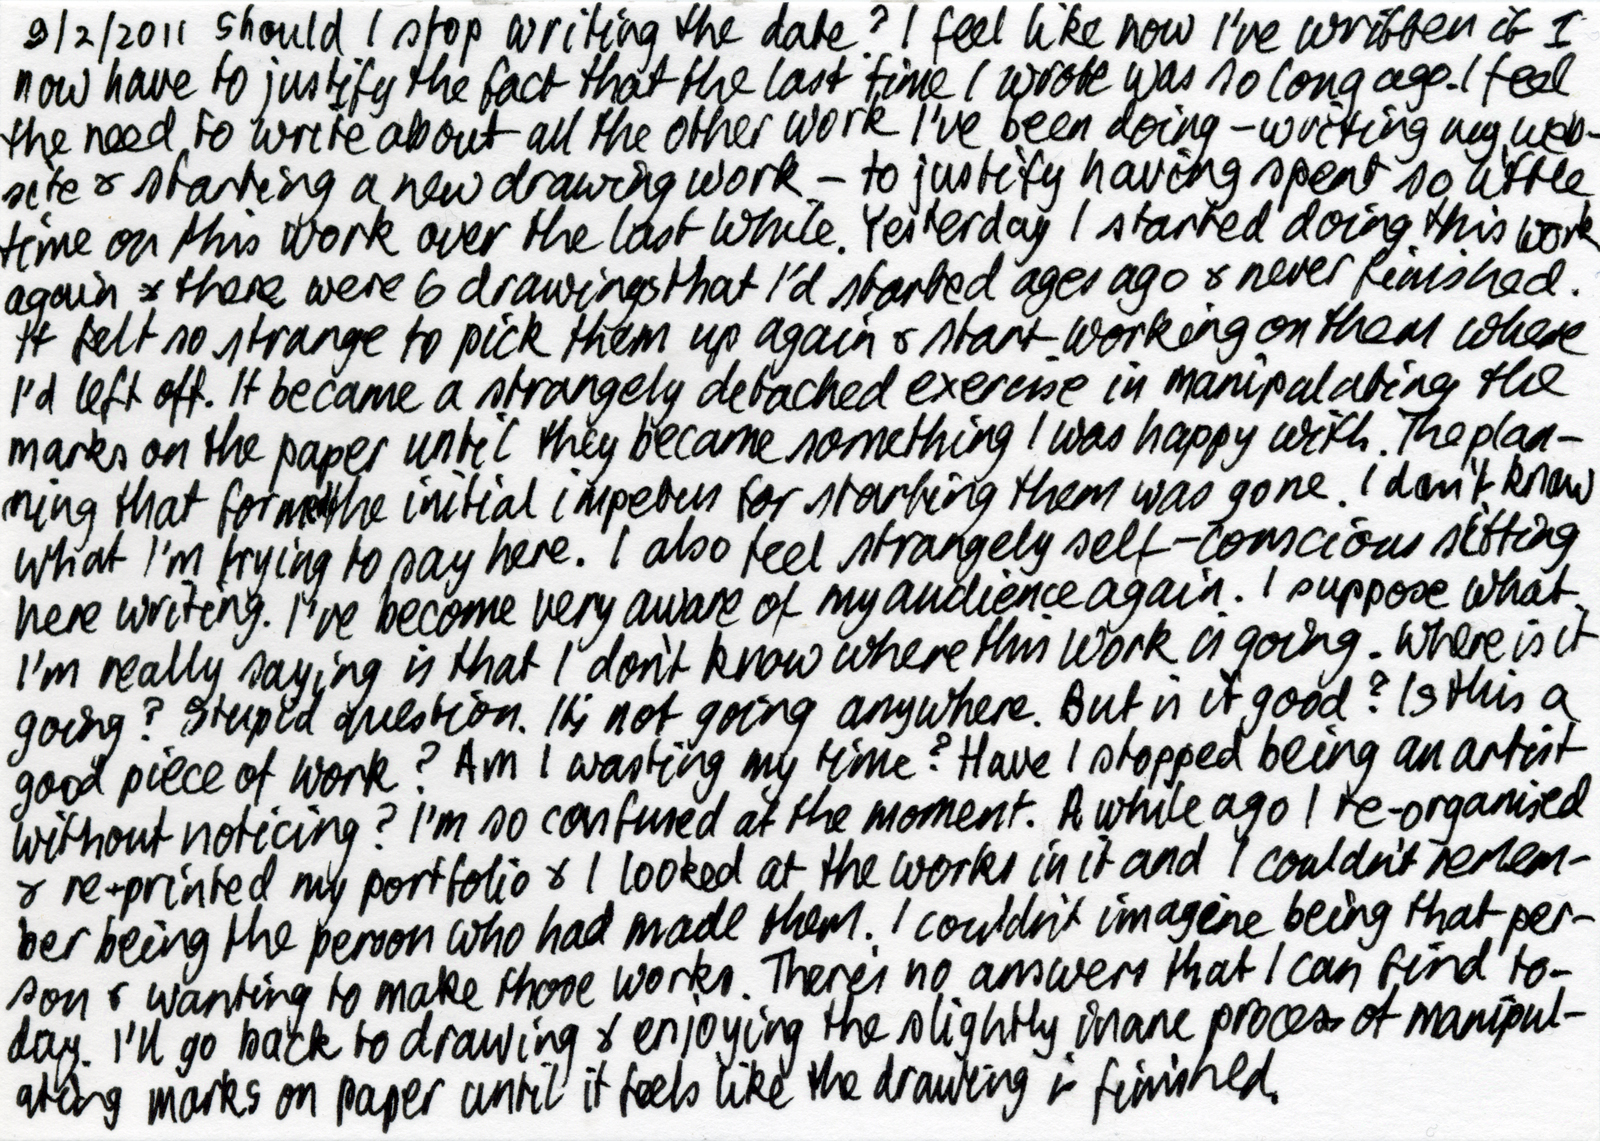 9/2/2011 Should I stop writing the date? I feel like now I've written it I
now have to justify the fact that the last time I wrote was so long ago. I feel
the need to write about all the other work I've been doing – writing my web-
site & starting a new drawing work – to justify having spent so little
time on this work over the last while. Yesterday I started doing this work
again & there were 6 drawings that I'd started ages ago & never finished.
It felt so strange to pick them up again & start working on them where
I'd left off. It became a strangely detached exercise in manipulating the
marks on the paper until they became something I was happy with. The plan-
ning that formed the initial impetus for starting them was gone. I don't know
what I'm trying to say here. I also feel strangely self-conscious sitting
here writing. I've become very aware of my audience again. I suppose what
I'm really saying is that I don't know where this work is going. Where is it
going? Stupid question. It's not going anywhere. But is it good? Is this a
good piece of work? Am I wasting my time? Have I stopped being an artist
without noticing? I'm so confused at the moment. A while ago I re-organised
& re-printed my portfolio & I looked at the works in it and I couldn't remem-
ber being the person who had made them. I couldn't imagine being that per-
son & wanting to make those works. There's no answers that I can find to-
day. I'll go back to drawing & enjoying the slightly inane process of manipul-
ating marks on paper until it feels like the drawing is finished.